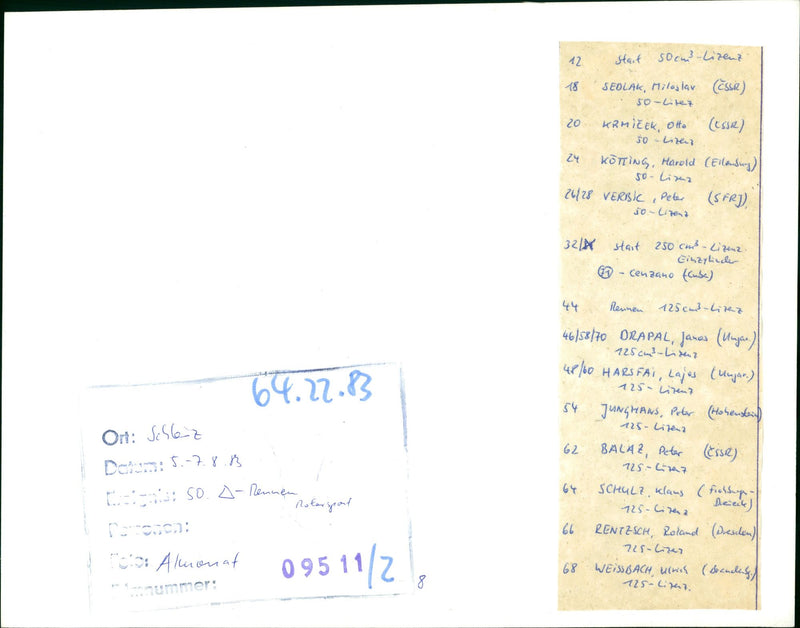 64.22.83
Ort: Schleiz
Datum: 5.-7.8.83
Ereignis: 50. △-Rennen
Motorsport
Personen:
Foto: Almonat
Filmnummer: 09511/2
8
12 Start 50cm³-Lizenz
18 SEDLAK, Miloslav (ČSSR)
50-Lizenz
20 KRMIČEK, Otto (ČSSR)
50-Lizenz
24 KÖTTING, Harold (Eilenburg)
50-Lizenz
26/28 VERBIC, Peter (SFRJ)
50-Lizenz
32/ Start 250cm³-Lizenz
Einzylinder
71 - cenzano (Cuba)
44 Rennen 125cm³-Lizenz
46/58/70 DRAPAL, Janos (Ungar.)
125cm³-Lizenz
48/60 HARSFAI, Lajos (Ungar.)
125-Lizenz
54 JUNGHANS, Peter (Hohenstein)
125-Lizenz
62 BALAŽ, Peter (ČSSR)
125-Lizenz
64 SCHULZ, Klaus (Frohburger-
Dreieck)
125-Lizenz
66 RENTZSCH, Roland (Dresden)
125-Lizenz
68 WEISSBACH, Ulrich (Brandenbg.)
125-Lizenz.